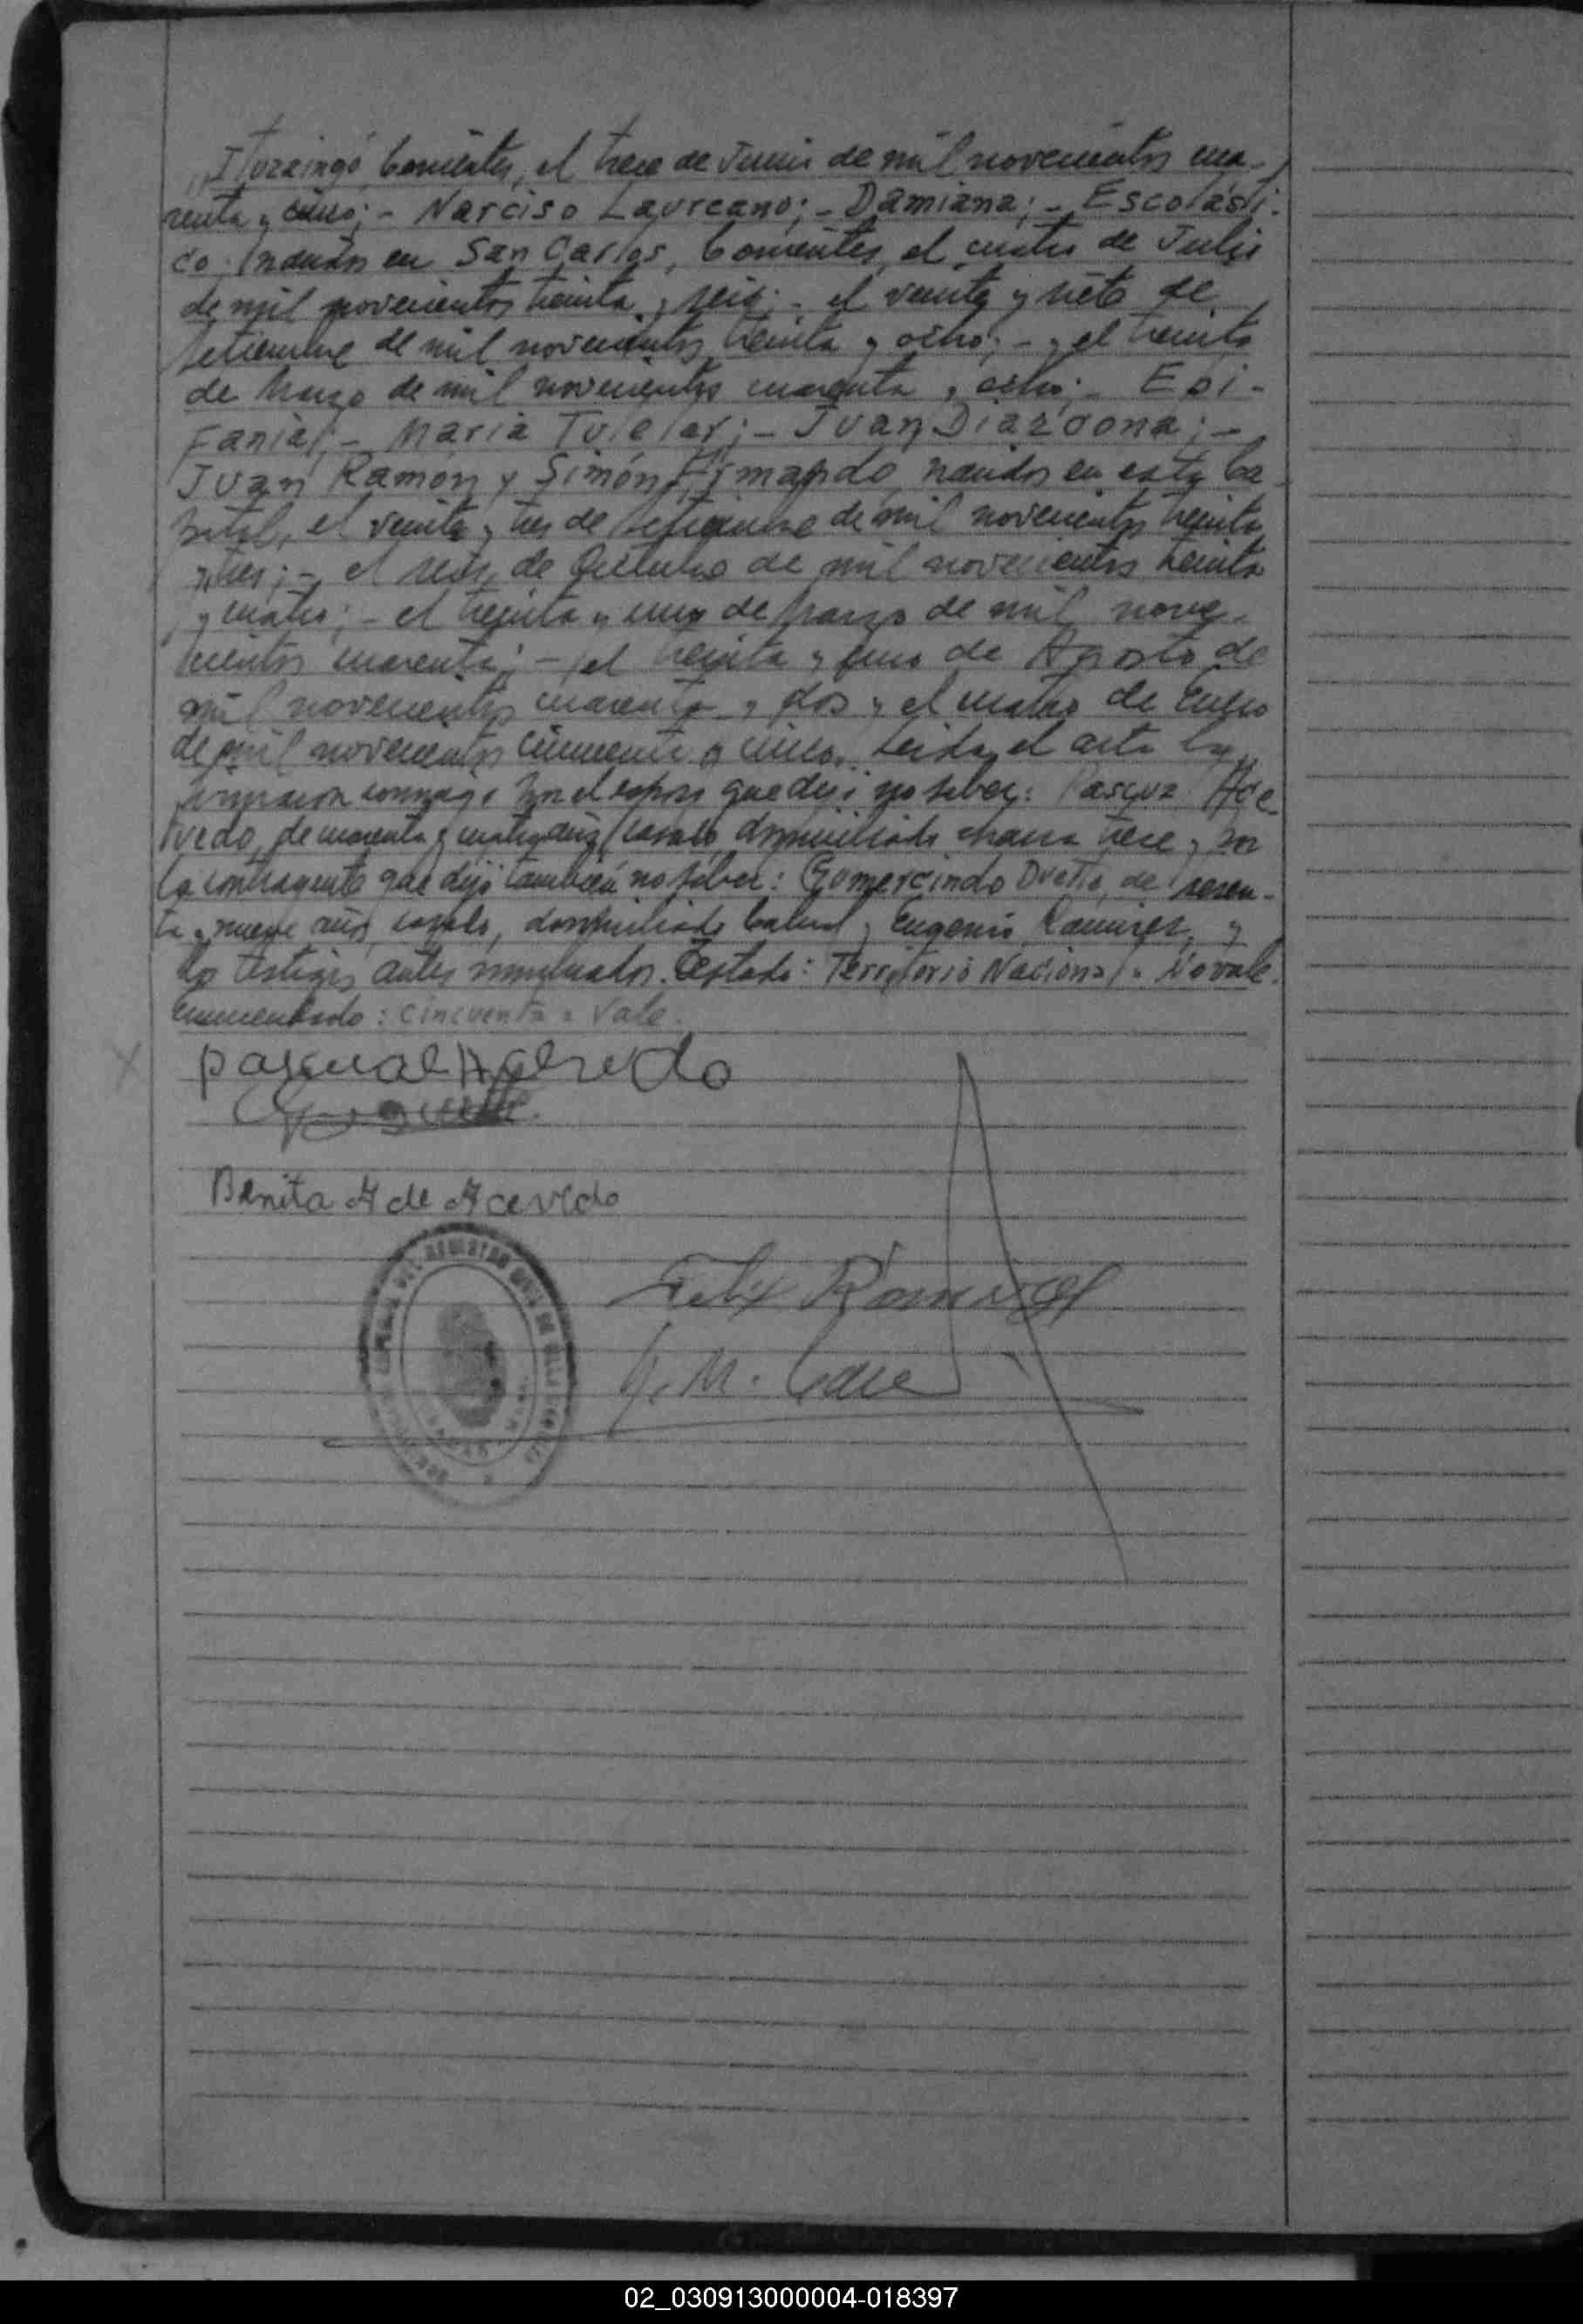 Ituzaingó, Corrientes, el trece de Junio de mil novecientos cua-
renta y cinco; - Narciso Laureano; - Damiana; - Escolásti-
co, nacidos en San Carlos, Corrientes, el cuatro de Julio
de mil novecientos treinta y seis; - el veinte y siete de
setiembre de mil novecientos treinta y ocho; - y el treinta
de Marzo de mil novecientos cuarenta y ocho; - Epi-
Fania; - Maria Tutelar; - Juan Diaz
Juan Ramón y Simón Armando, nacidos en esta Ca-
pital, el veinte y tres de setiembre de mil novecientos treinta
y tres; - el seis de Octubre de mil novecientos treinta
y cuatro; - el treinta y uno de Marzo de mil nove-
cientos cuarenta; - el treinta y uno de Agosto de
mil novecientos cuarenta y dos y el cuatro de Enero
de mil novecientos cincuenta y cinco. Leída el acta la
firmaron conmigo, por el esposo que dijo no saber: Pascual Ace-
vedo, de cuarenta y cuatro años, casado, domiciliado chacra trece y por
la contrayente que dijo también no saber: Gomercindo Duette, de sesen-
ta y nueve años, casado, domiciliado y Eugenio Ramirez, y
los testigos antes nombrados. Testado: Territorio Nacional. No vale.
Enmendado: Cincuenta = Vale.
Pascual Acevedo
Benita A de Acevedo
Felix Ramirez